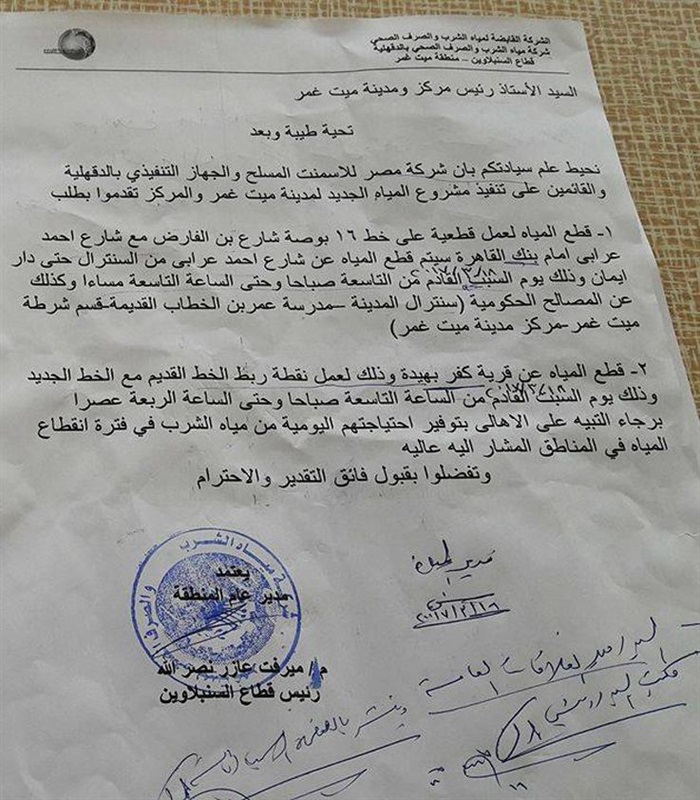 الشركة القابضة لمياه الشرب والصرف الصحي
شركة مياه الشرب والصرف الصحي بالدقهلية
قطاع السنبلاوين – منطقة ميت غمر
السيد الأستاذ رئيس مركز ومدينة ميت غمر
تحية طيبة وبعد
نحيط علم سيادتكم بان شركة مصر للاسمنت المسلح والجهاز التنفيذي بالدقهلية
والقائمين على تنفيذ مشروع المياه الجديد لمدينة ميت غمر والمركز تقدموا بطلب
١- قطع المياه لعمل قطعية على خط ١٦ بوصة شارع بن الفارض مع شارع احمد
عرابى امام بنك القاهرة سيتم قطع المياه عن شارع احمد عرابى من السنترال حتى دار
ايمان وذلك يوم السبت القادم من التاسعة صباحا وحتى الساعة التاسعة مساءا وكذلك
عن المصالح الحكومية (سنترال المدينة –مدرسة عمربن الخطاب القديمة-قسم شرطة
ميت غمر-مركز مدينة ميت غمر)
٢- قطع المياه عن قرية كفر بهيدة وذلك لعمل نقطة ربط الخط القديم مع الخط الجديد
وذلك يوم السبت القادم من الساعة التاسعة صباحا وحتى الساعة الربعة عصرا
برجاء التبيه على الاهالى بتوفير احتياجتهم اليومية من مياه الشرب في فترة انقطاع
المياه في المناطق المشار اليه عاليه
وتفضلوا بقبول فائق التقدير والاحترام
يعتمد
مدير عام المنطقة
م / ميرفت عازر نصر الله
رئيس قطاع السنبلاوين
شركة مياه الشرب والصرف
مدير
٢٠١٧/٢/١٦
العلاقات العامة